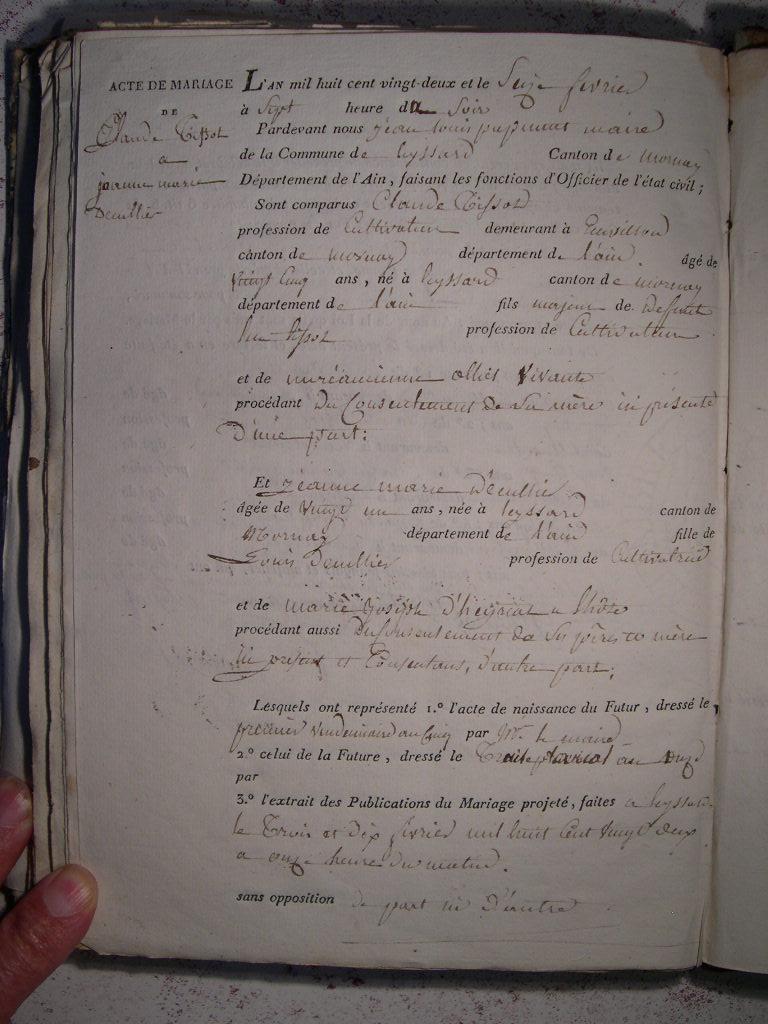 ACTE DE MARIAGE
DE
Claude Tissot
a
jeanne marie
Deuillier
L'AN mil huit cent vingt-deux et le Seize fevrier
à Sept heure du Soir
Pardevant nous jean louis maire
de la Commune de leyssard Canton de mornay
Département de l'Ain, faisant les fonctions d'Officier de l'état civil;
Sont comparus Claude Tissot
profession de Cultivateur demeurant à
canton de mornay département de l'ain. âgé de
vingt Cinq ans, né à leyssard canton de mornay
département de l'ain fils majeur de Deffunt
tissot profession de Cultivateur
et de vivante
procédant Du Consentement de Sa mère ici présente
D'une part:
Et jeanne marie Deuillier
âgée de vingt un ans, née à leyssard canton de
Mornay département de l'ain fille de
Louis Deuillier profession de Cultivateur
et de marie Joseph
procédant aussi Du Consentement de Ses père et mère
ici et Consentans, D'autre part;
Lesquels ont représenté 1.º l'acte de naissance du Futur, dressé le
premier vendemiaire an Cinq par Mr. le maire
2.º celui de la Future, dressé le an onze
par
3.º l'extrait des Publications du Mariage projeté, faites a leyssard
le Trois et Dix fevrier mil huit Cent vingt deux
a onze heure du matin.
sans opposition de part ni D'autre